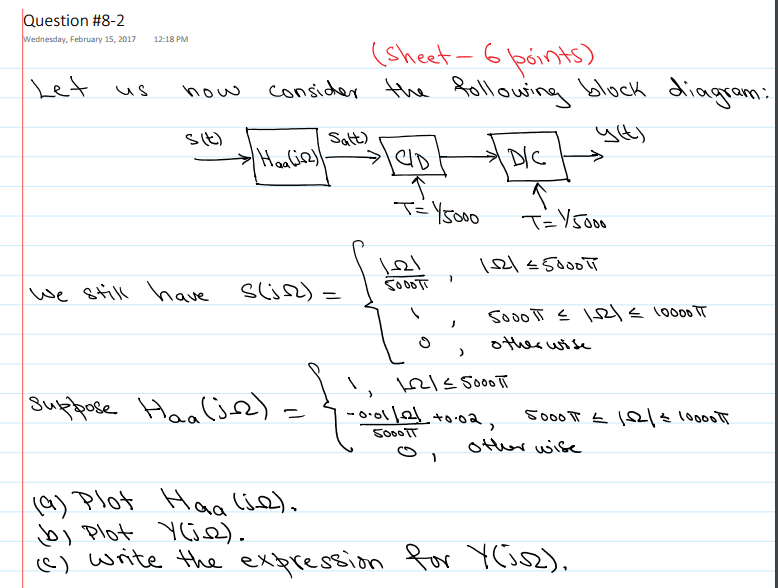 Question #8-2
Wednesday, February 15, 2017 12:18 PM
(Sheet - 6 points)
Let us now consider the following block diagram:
s(t) Haa(jΩ) Sa(t) C/D D/C y(t)
T=1/5000 T=1/5000
We still have S(jΩ) =
|Ω|/5000π , |Ω| ≤ 5000π
1 , 5000π ≤ |Ω| ≤ 10000π
0 , otherwise
Suppose Haa(jΩ) =
1, |Ω| ≤ 5000π
-0.01|Ω|/5000π +0.02, 5000π ≤ |Ω| ≤ 10000π
0, otherwise
(a) Plot Haa(jΩ).
(b) Plot Y(jΩ).
(c) Write the expression for Y(jΩ).